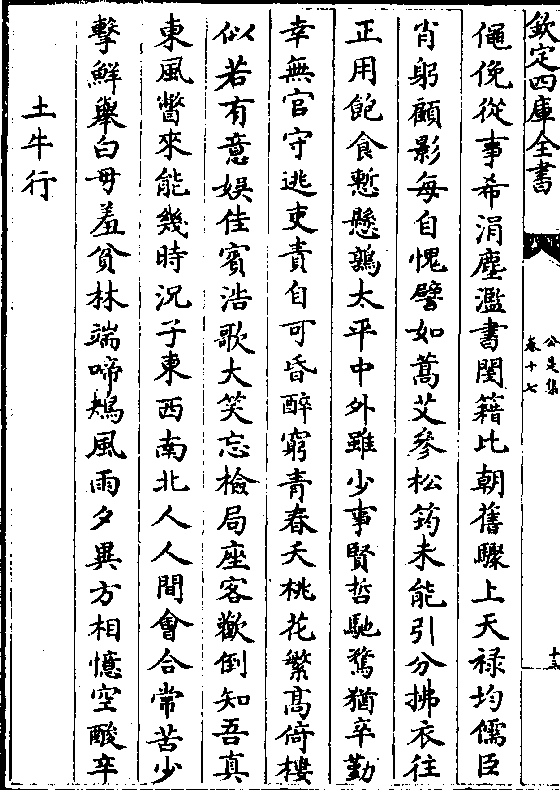 欽定四庫全書
公是集
卷十七
僶俛從事希涓塵濫書閨籍比朝舊驟上天禄均儒臣
肖躬顧影每自愧譬如蒿艾參松筠未能引分拂衣往
正用飽食慙懸鶉太平中外雖少事賢哲馳騖猶卒勤
幸無官守逃吏責自可昏醉窮青春夭桃花繁髙倚樓
似若有意娱佳賓浩歌大笑忘檢局座客歡倒知吾真
東風暫來能幾時況子東西南北人人間會合常苦少
擊鮮舉白毋羞貧林端啼鴂風雨夕異方相憶空酸辛
土牛行